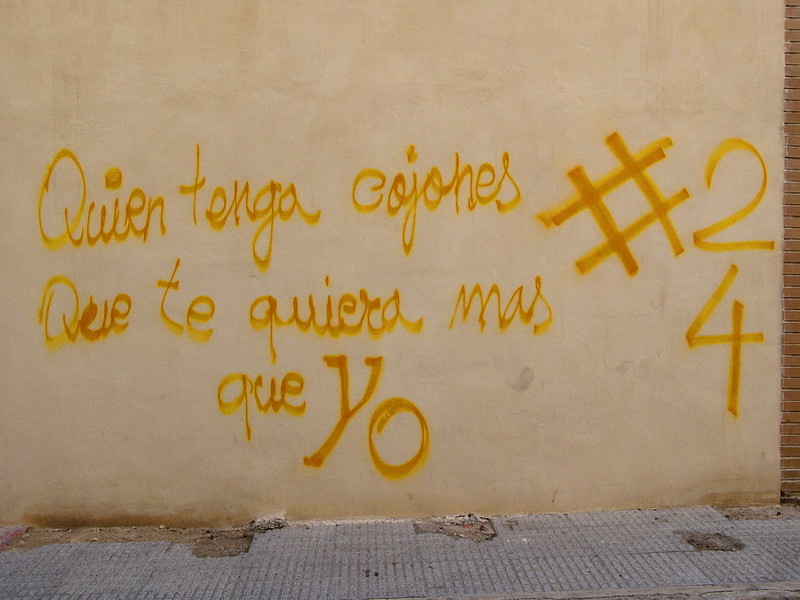 Quien tenga cojones #2
Que te quiera mas 4
que yo